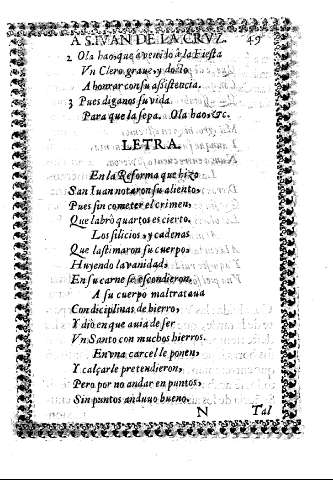 A S. IVAN DE LA CRVZ. 49
2 Ola hao, que à venido à la Fiesta
Vn Clero graue, y docto
A honrar con su assistencia.
3 Pues diganos su vida
Para que la sepa. Ola hao, &c.
LETRA.
En la Reforma que hizo
San Iuan notaron su aliento,
Pues sin cometer el crimen,
Que labrò quartos es cierto.
Los silicios, y cadenas
Que lastimaron su cuerpo,
Huyendo la vanidad,
En su carne se escondieron.
A su cuerpo maltrataua
Con diciplinas de hierro,
Y diò en que auia de ser
Vn Santo con muchos hierros.
En vna carcel le ponen,
Y calçarle pretendieron,
Pero por no andar en puntos,
Sin puntos anduuo bueno.
N Tal